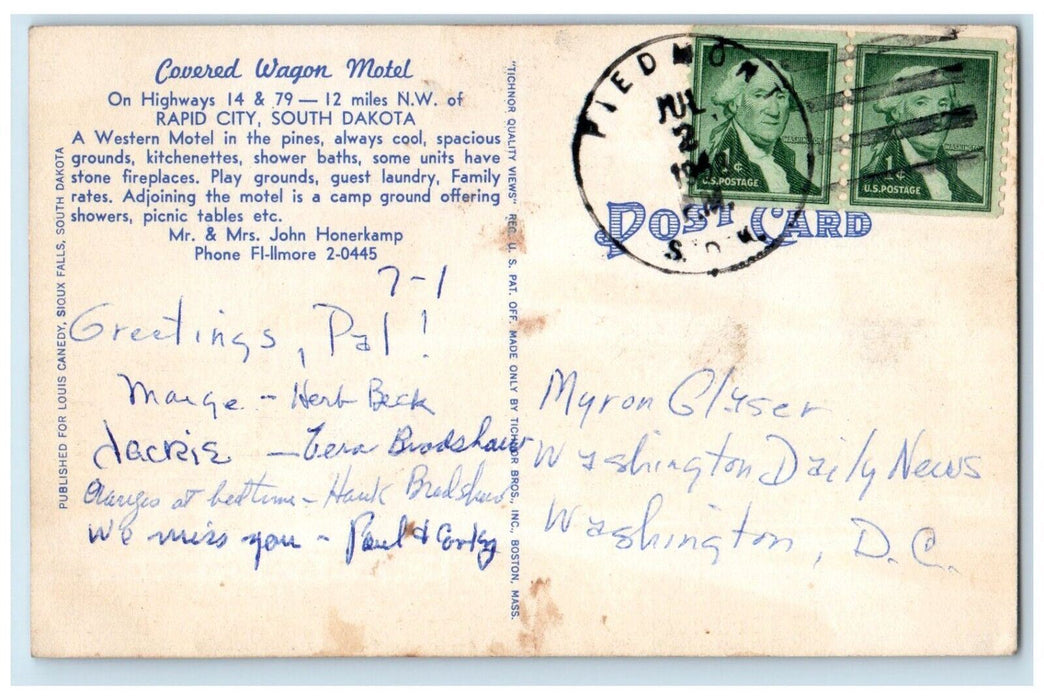 Covered Wagon Motel
On Highways 14 & 79 — 12 miles N.W. of
RAPID CITY, SOUTH DAKOTA
A Western Motel in the pines, always cool, spacious
grounds, kitchenettes, shower baths, some units have
stone fireplaces. Play grounds, guest laundry, Family
rates. Adjoining the motel is a camp ground offering
showers, picnic tables etc.
Mr. & Mrs. John Honerkamp
Phone FI-llmore 2-0445
7-1
Greetings, Pal!
Marge - Herb Beck
Jackie - Vera Bradshaw
Oranges at bedtime - Hank Bradshaw
We miss you - Paul & Corky
PUBLISHED FOR LOUIS CANEDY, SIOUX FALLS, SOUTH DAKOTA
"TICHNOR QUALITY VIEWS" REG. U. S. PAT. OFF. MADE ONLY BY TICHNOR BROS., INC., BOSTON, MASS.
PIEDMONT
JUL
2
S. DAK.
WASHINGTON
1¢
U.S. POSTAGE
WASHINGTON
1¢
U.S. POSTAGE
POST CARD
Myron Glaser
Washington Daily News
Washington, D.C.